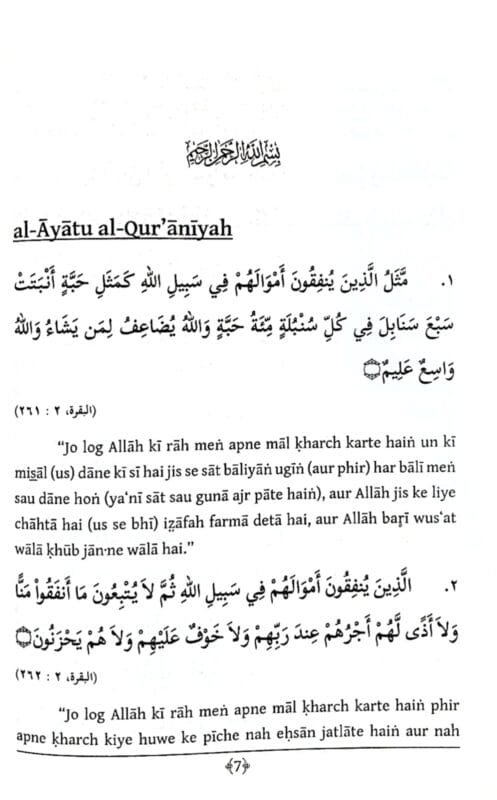 بِسْمِ اللهِ الرَّحْمٰنِ الرَّحِيْمِ
al-Āyātu al-Qur’ānīyah
١. مَّثَلُ الَّذِينَ يُنفِقُونَ أَمْوَالَهُمْ فِي سَبِيلِ اللهِ كَمَثَلِ حَبَّةٍ أَنْبَتَتْ
سَبْعَ سَنَابِلَ فِي كُلِّ سُنْبُلَةٍ مِّئَةُ حَبَّةٍ وَاللهُ يُضَاعِفُ لِمَن يَشَاءُ وَاللهُ
وَاسِعٌ عَلِيمٌ۝
(البقرة، ٢ : ٢٦١)
“Jo log Allāh kī rāh meṅ apne māl ḳharch karte haiṅ un kī
mis̲āl (us) dāne kī sī hai jis se sāt bāliyāṅ ugīṅ (aur phir) har bālī meṅ
sau dāne hoṅ (ya‘nī sāt sau gunā ajr pāte haiṅ), aur Allāh jis ke liye
chāhtā hai (us se bhī) iẓāfah farmā detā hai, aur Allāh baṛī wus‘at
wālā ḳhūb jān·ne wālā hai.”
٢. الَّذِينَ يُنْفِقُونَ أَمْوَالَهُمْ فِي سَبِيلِ اللهِ ثُمَّ لاَ يُتْبِعُونَ مَا أَنفَقُواْ مَنًّا
وَلاَ أَذًى لَّهُمْ أَجْرُهُمْ عِندَ رَبِّهِمْ وَلاَ خَوْفٌ عَلَيْهِمْ وَلاَ هُمْ يَحْزَنُونَ۝
(البقرة، ٢ : ٢٦٢)
“Jo log Allāh kī rāh meṅ apne māl ḳharch karte haiṅ phir
apne ḳharch kiye huwe ke pīche nah eḥsān jatlāte haiṅ aur nah
﴾7﴿